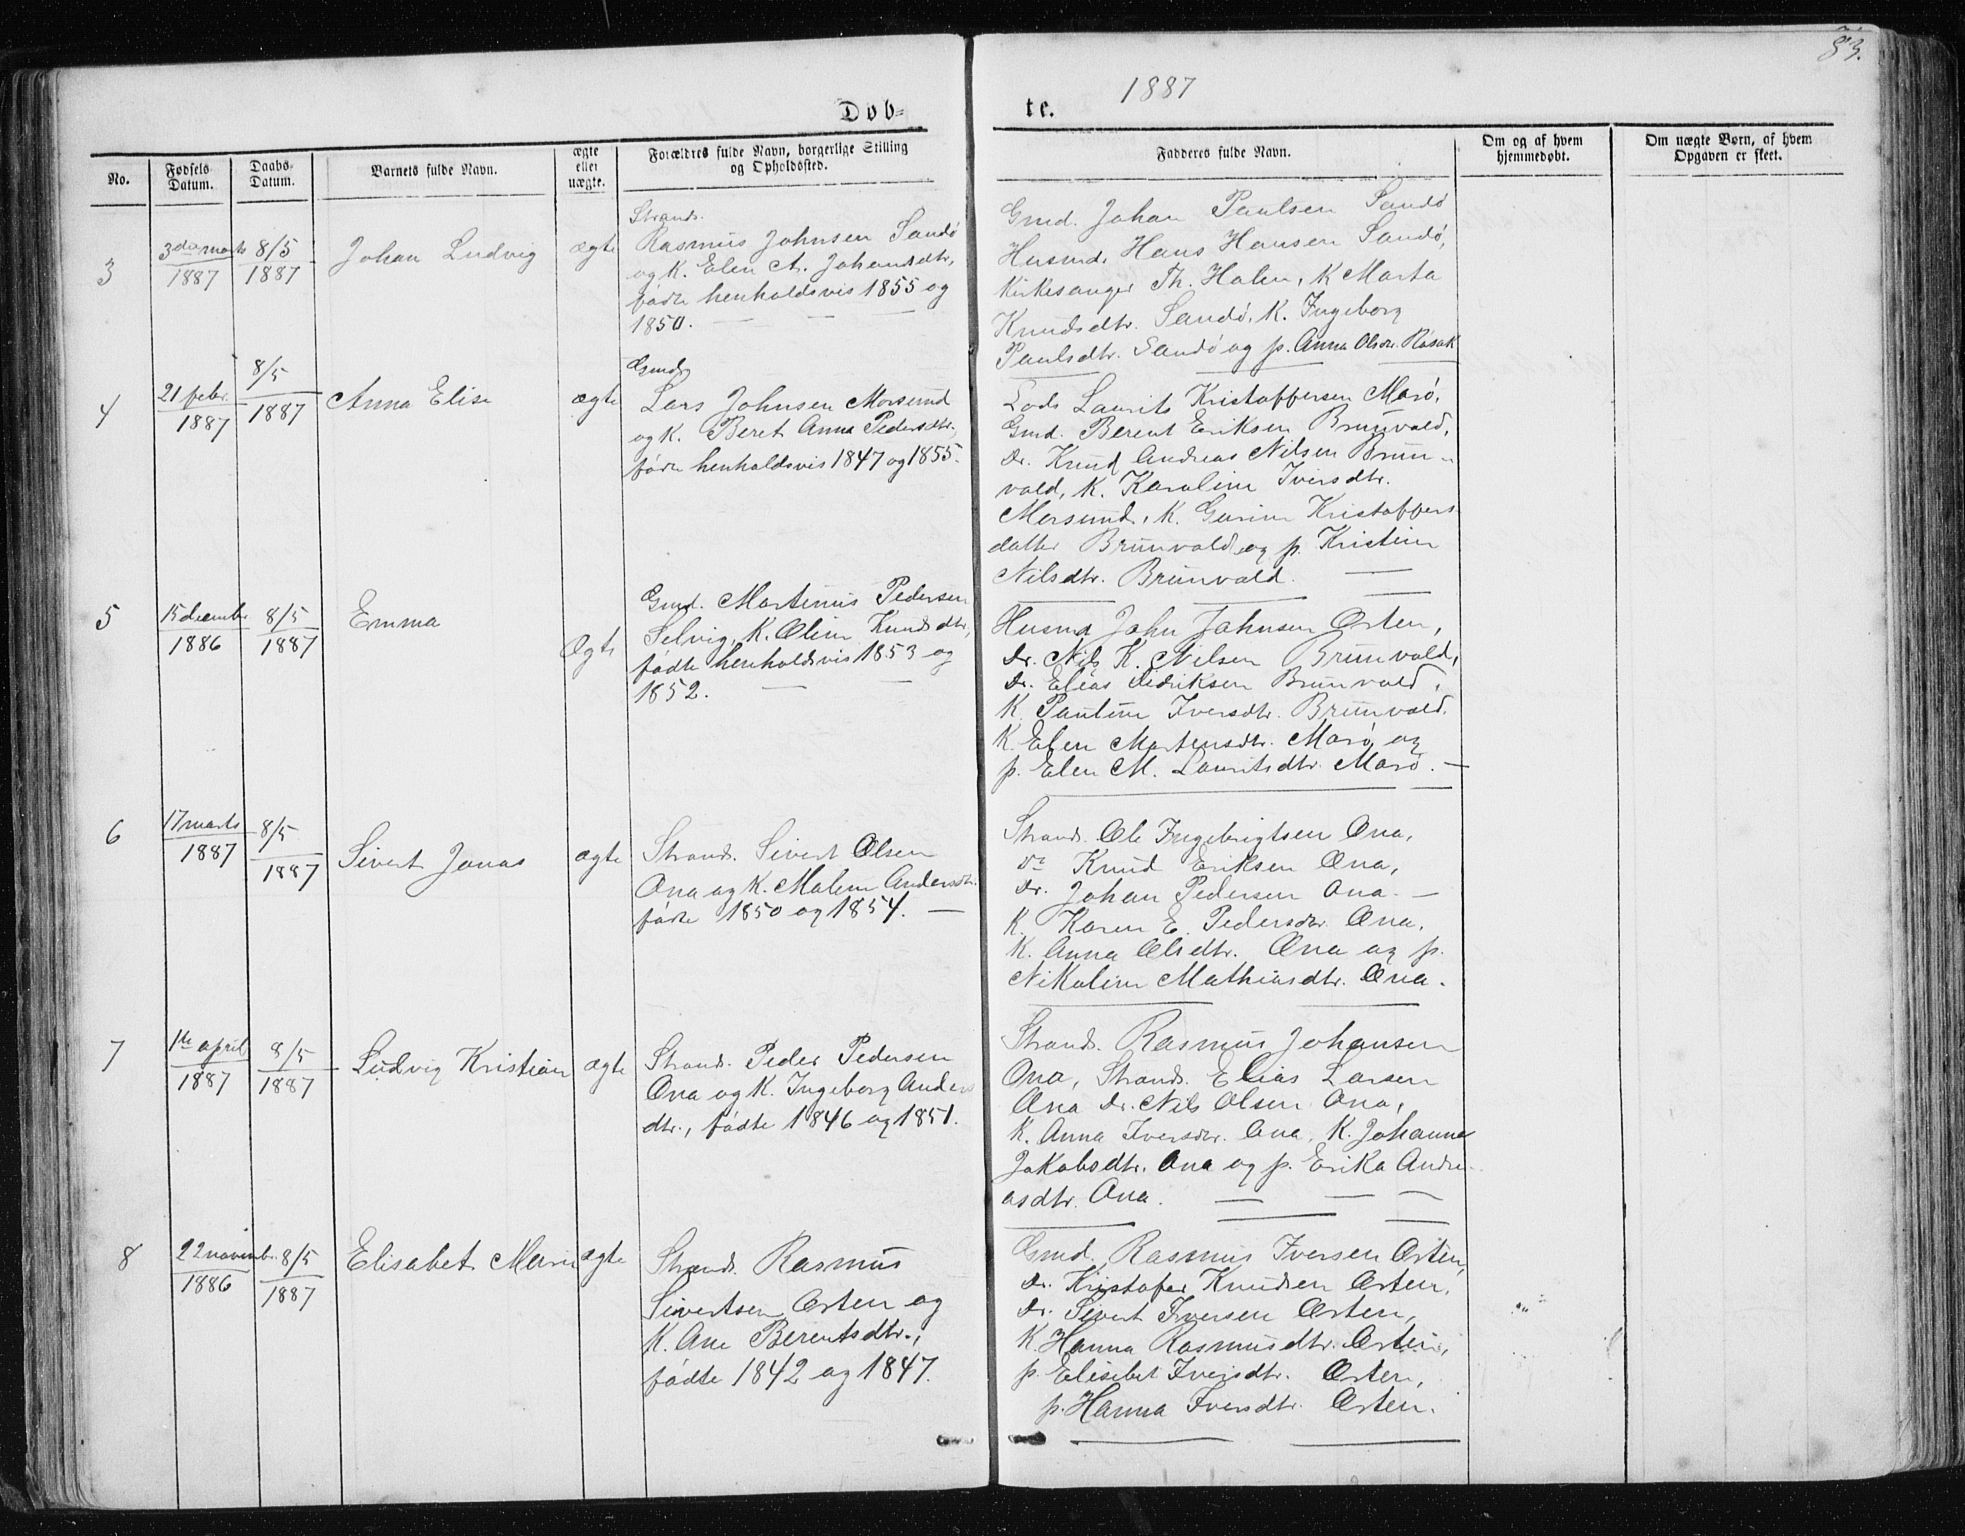 83.
1887
Døb=
te.
No.
Fødsels Datum.
Daabs-Datum.
Barnets fulde Navn.
ægte eller uægte.
Forældres fulde Navn, borgerlige Stilling og Opholdssted.
Fadderes fulde Navn.
Om og af hvem hjemmedøbt.
Om uægte Børn, af hvem Opgaven er skeet.
3
3die marts
1887
8/5
1887
Johan Ludvig
ægte
Strands.
Rasmus Johnsen Sandø
og K. Elen A. Johansdtr,
fødte henholdsvis 1855 og
1850.
Gmd. Johan Paulsen Sandø
Husmd. Hans Hansen Sandø,
Kirkesanger Th. Halen, K Marta
Knudsdtr. Sandø, K. Ingeborg
Paulsdtr. Sandø og p. Anna Olsdr.
4
21 febr.
1887
8/5
1887
Anna Elise
ægte
Gmd.
Lars Johnsen Morsund
og K. Beret Anna Pedersdtr.,
fødte henholdsvis 1847 og 1855.
Lods Laurits Kristoffersen Marø,
Gmd. Berent Eriksen Brunvold,
Dr. Knud Andreas Nilsen Brun-
vold, K. Karoline Iversdtr.
Morsund, K. Gurine Kristoffers
datter Brunvold og p. Kristine
Nilsdtr. Brunvold.
5
15 decembr.
1886
8/5
1887
Emma
Ægte
Gmd. Martinus Pedersen
Selvig, K. Oline Knudsdtr,
fødte henholdsvis 1853 og
1852.
Husmd John Johnsen Orten,
Dr. Nils K. Nilsen Brunvold,
Dr. Elias Brunvold,
K. Pauline Iversdtr. Brunvold.
K. Elen Mortensdtr. Marø og
p. Elen M. Lauritsdtr. Marø.
6
17 marts
1887
8/5
1887
Sivert Jonas
ægte
Strands. Sivert Olsen
Ona og K. Malene Andersdtr.
fødte 1850 og 1854.
Strands. Ole Ingebrigtsen Ona,
Dr. Knud Eriksen Ona,
Dr. Johan Pedersen Ona.
K. Karen E. Pedersdtr. Ona,
K. Anna Olsdtr. Ona og p.
Nikoline Mathiasdtr. Ona.
7
1ste april
1887
8/5
1887
Ludvig Kristian
ægte
Strands. Peder Pedersen
Ona og K. Ingeborg Anders
dtr., fødte 1846 og 1851.
Strands. Rasmus Johansen
Ona, Strands. Elias Larsen
Ona Dr. Nils Olsen Ona,
K. Anna Iversdtr. Ona, K. Johanna
Jakobsdtr. Ona og p. Erika Andre
asdtr. Ona.
8
22 novembr.
1886
8/5
1887
Elisabet Marie
ægte
Strands. Rasmus
Sivertsen Orten og
K. Ane Berentsdtr.,
fødte 1842 og 1847.
Gmd. Rasmus Iversen Orten,
Dr. Kristofer Knudsen Orten,
Dr. Sivert Iversen Orten,
K. Hanna Rasmusdtr. Orten,
p. Elisebet Iversdtr. Orten,
p. Hanna Iversdtr. Orten.